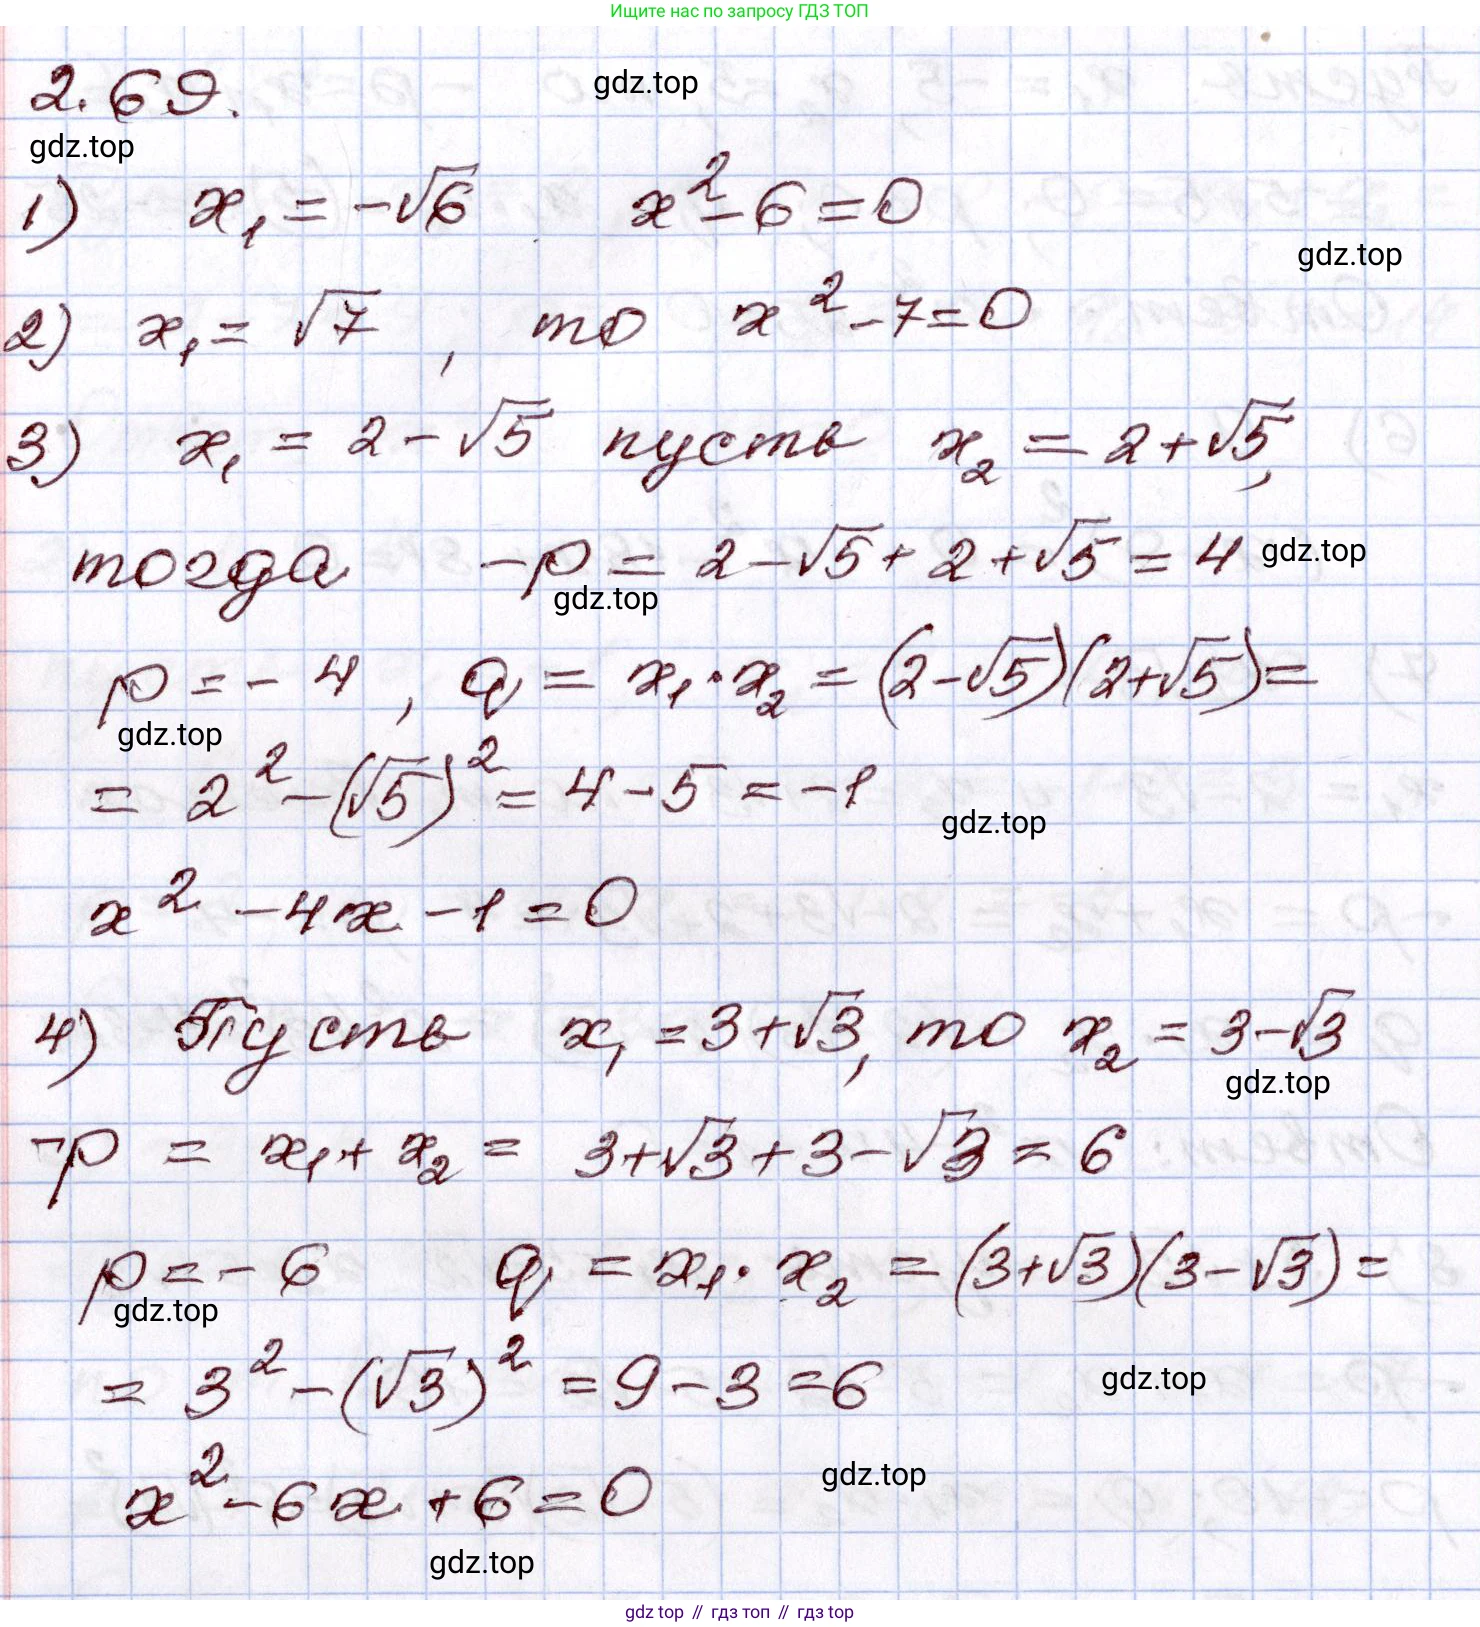 Ищите нас по запросу ГДЗ ТОП
2.69.
gdz.top
gdz.top
1) x₁ = -√6 x² - 6 = 0
gdz.top
2) x₁ = √7, то x² - 7 = 0
3) x₁ = 2 - √5 пусть x₂ = 2 + √5,
тогда -p = 2 - √5 + 2 + √5 = 4
gdz.top
gdz.top
p = -4, q = x₁·x₂ = (2-√5)(2+√5) =
gdz.top
= 2² - (√5)² = 4 - 5 = -1
gdz.top
x² - 4x - 1 = 0
4) Пусть x₁ = 3 + √3, то x₂ = 3 - √3
gdz.top
-p = x₁ + x₂ = 3 + √3 + 3 - √3 = 6
p = -6 q = x₁·x₂ = (3+√3)(3-√3) =
gdz.top
= 3² - (√3)² = 9 - 3 = 6
gdz.top
x² - 6x + 6 = 0
gdz.top
gdz.top
gdz top // гдз топ // гдз top